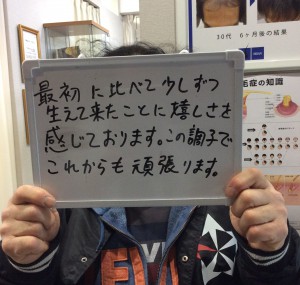 30代 6ヶ月後の結果
毛症の知識
最初に比べて少しずつ
生えて来たことに嬉しさを
感じております。この調子で
これからも頑張ります。